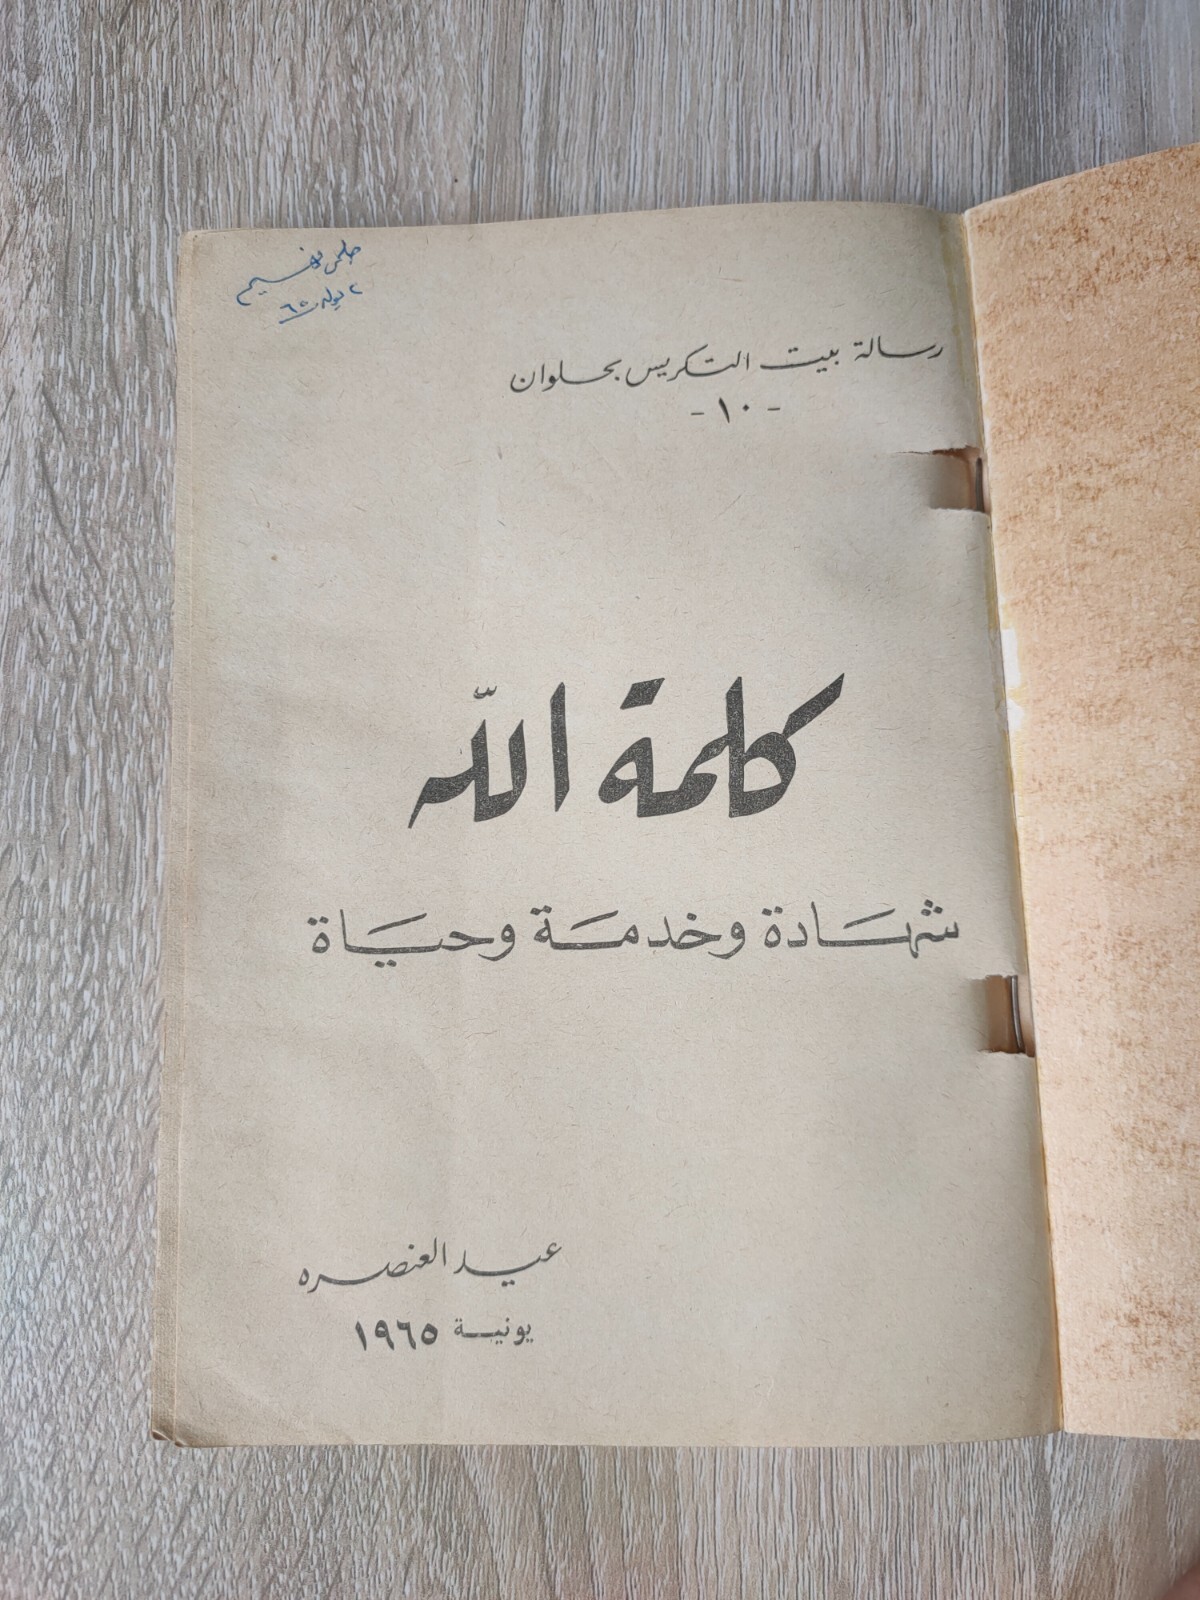 حلمى
٢ يوليه ٦٥
رسالة بيت التكريس بحلوان
- ١٠ -
كلمة اللّه
شهادة وخدمة وحياة
عيد العنصره
يونية ١٩٦٥